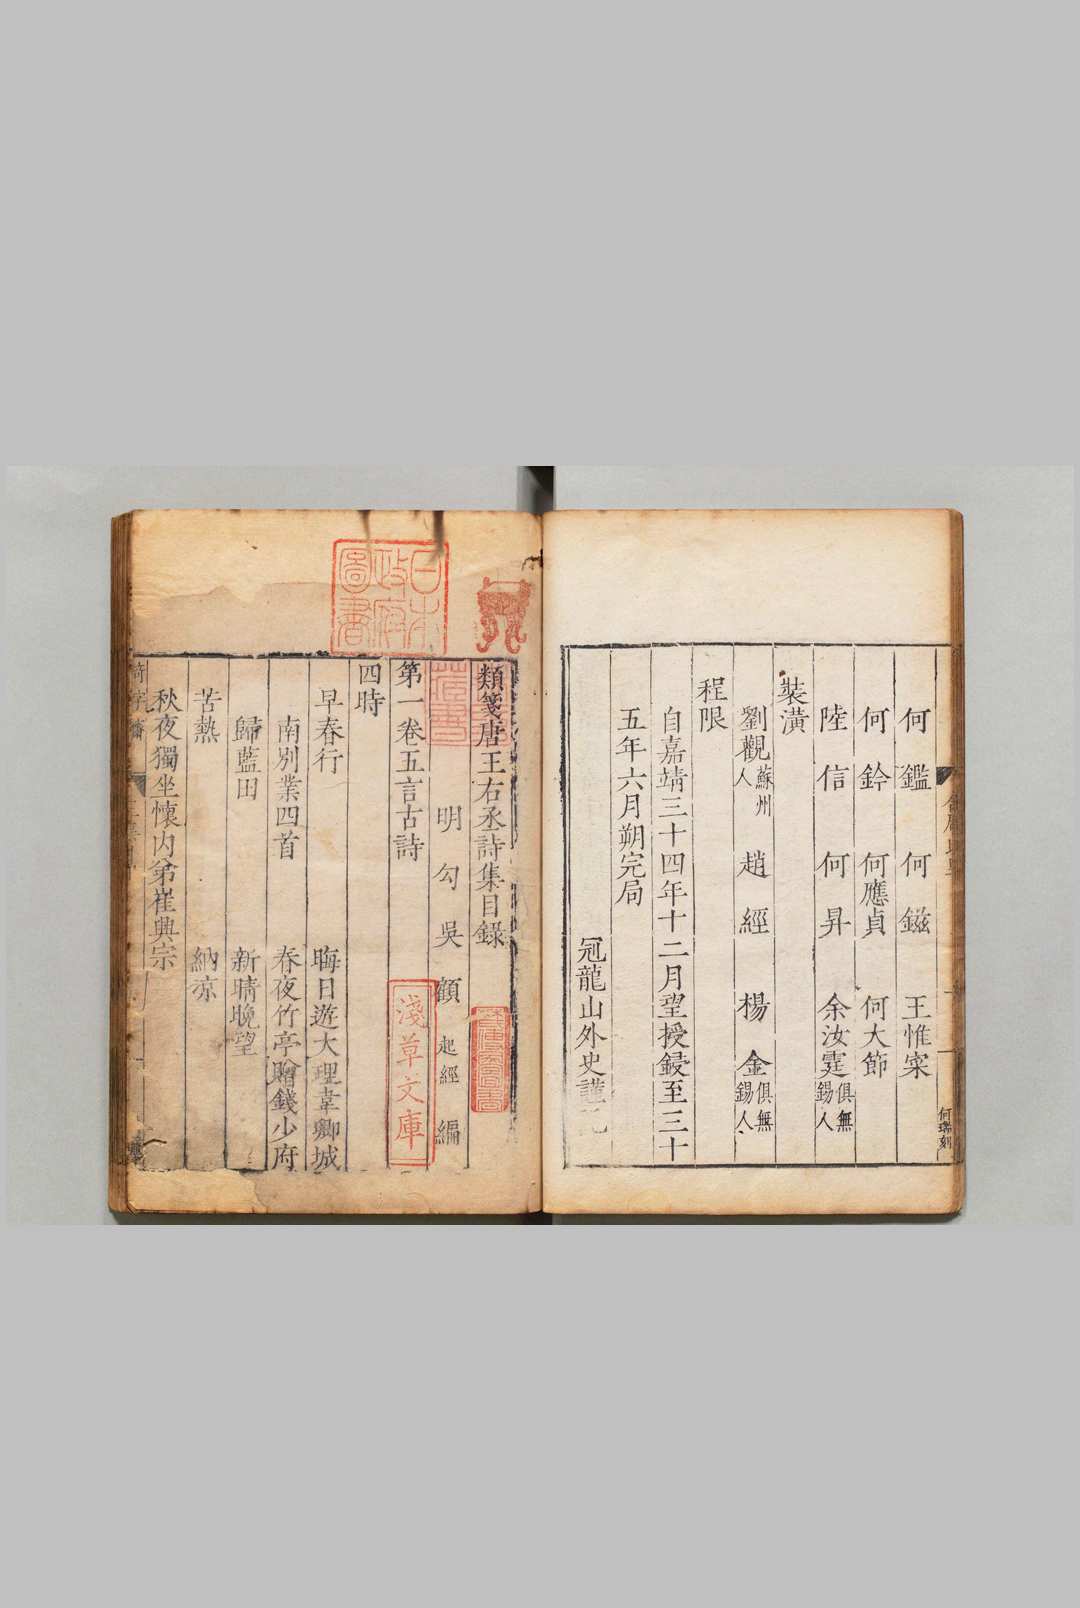 何鑑 何鎡 王惟寀
何鈐 何應貞 何大節
陸信 何昇 余汝霆 俱無錫人
裝潢
劉觀 蘇州人 趙經 楊金 俱無錫人
程限
自嘉靖三十四年十二月望授鋟至三十
五年六月朔完局
冠龍山外史謹
何瑞刻
類箋唐王右丞詩集目錄
明勾吳顧起經編
第一卷五言古詩
四時
早春行 晦日遊大理韋卿城
南別業四首 春夜竹亭贈錢少府
歸藍田 新晴晚望
苦熱 納涼
秋夜獨坐懷内弟崔興宗
日本政府圖書
淺草文庫